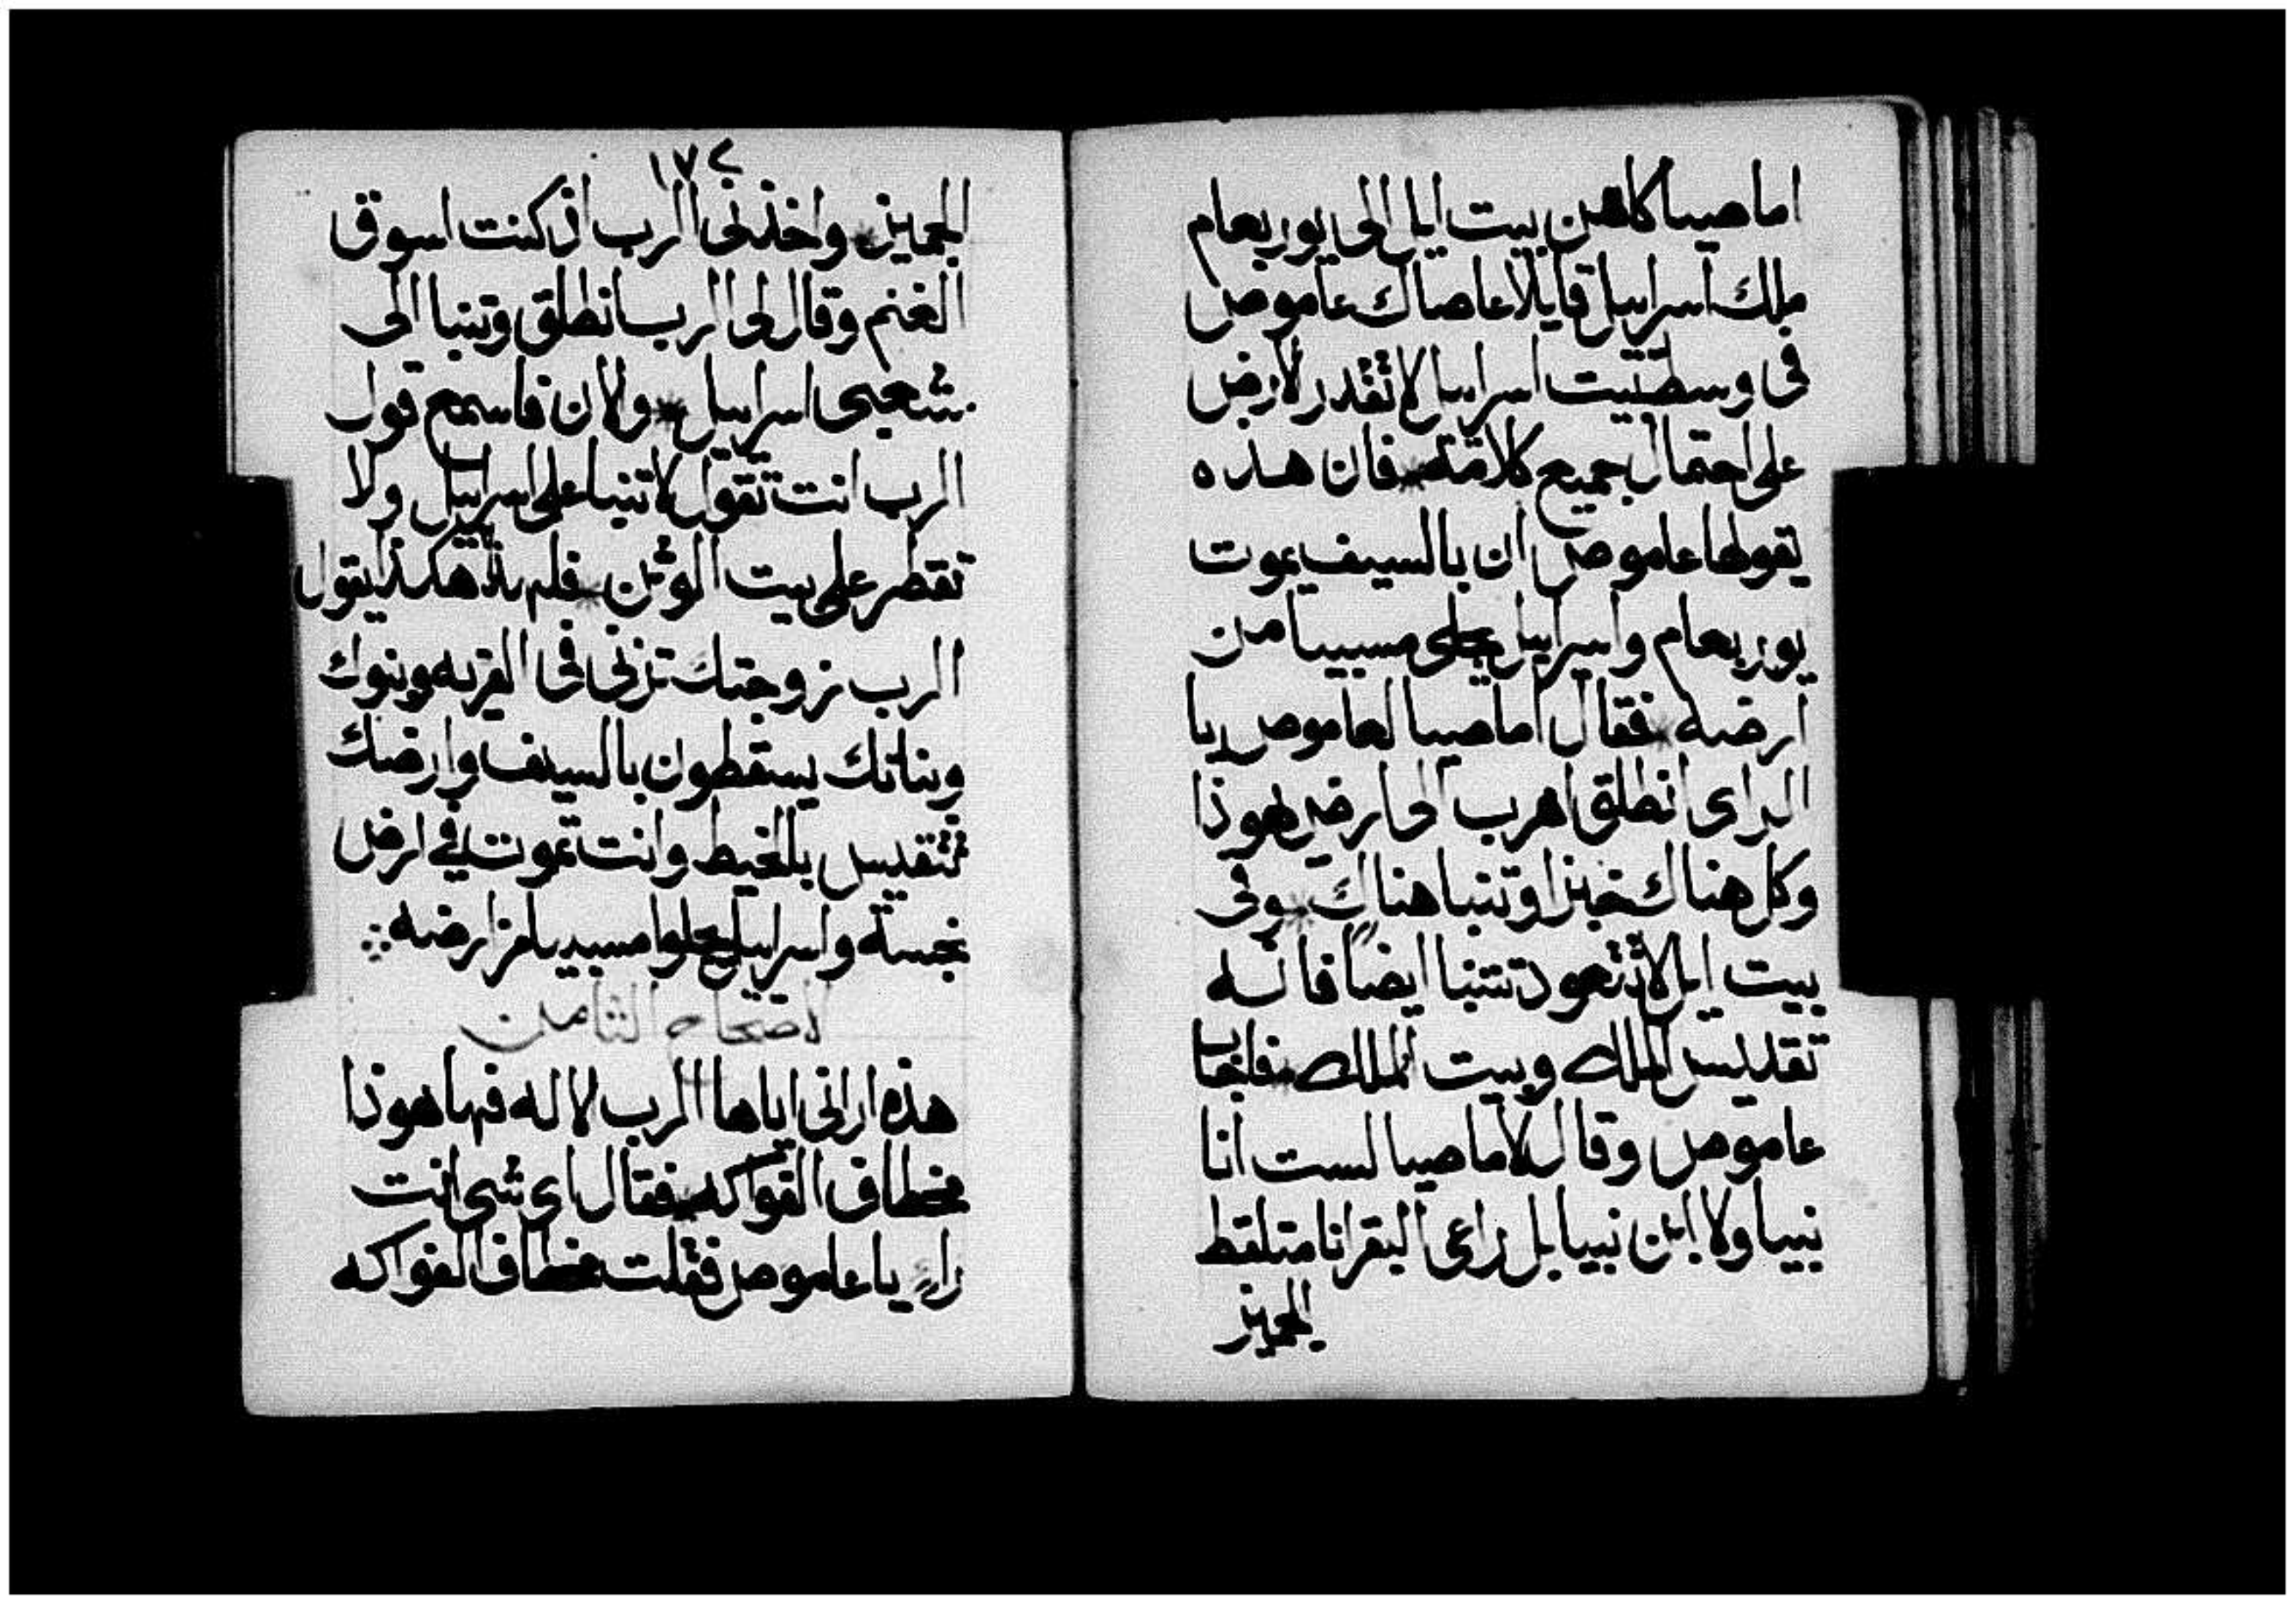 اماصيا كاهن بيت ايل الى يوربعام
ملك اسراييل قايلا عاصاك عاموص
فى وسط بيت اسراييل لا تقدر لارض
على احتمال جميع كلامه * فان هذه
يقولها عاموص ان بالسيف يموت
يوربعام واسراييل يجلى مسبيا من
ارضه * فقال اماصيا لعاموص يا
الراى انطلق اهرب الى ارض يهوذا
وكل هناك خبزا وتنبا هناك * وفى
بيت ايل لا تعود تتنبا ايضا فانه
تقديس الملك وبيت الملك * فاجاب
عاموص وقال لاماصيا لست انا
نبيا ولا ابن نبيا بل راعى البقر انا متلقط
الجميز
١٧٢
الجميز * واخذنى الرب اذ كنت اسوق
الغنم وقال لى الرب انطلق وتنبا الى
شعبى اسراييل * والان فاسمع قول
الرب انت تقول لا تنبا على اسراييل ولا
تقطر على بيت الوثن * فلهذا هكذا يقول
الرب زوجتك تزنى فى القريه وبنوك
وبناتك يسقطون بالسيف وارضك
تتقيس بالخيط وانت تموت فى ارض
نجسة واسراييل يجلوا مسبيا من ارضه
الاصحاح الثامن
هذه ارانى اياها الرب الاله فها هوذا
مخطاف الفواكه * فقال اى شى انت
راء يا عاموص فقلت مخطاف الفواكه